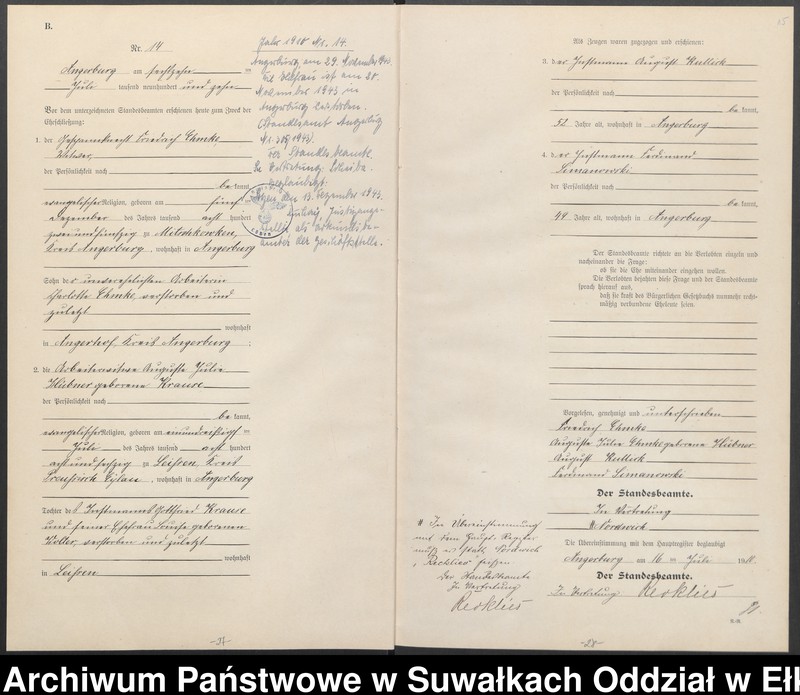 B.
Nr. 14
Angerburg am sechszehn ten
Juli tausend neunhundert und zehn
Vor dem unterzeichneten Standesbeamten erschienen heute zum Zweck der
Eheschließung:
1. der Gespannknecht Friedrich Chmko
Witwer,
der Persönlichkeit nach
be kannt,
evangelischer Religion, geboren am fünf ten
Dezember des Jahres tausend acht hundert
zweiundfünfzig zu
Kreis Angerburg, wohnhaft in Angerburg
Sohn der unverehelichten Arbeiterin
Charlotte Chmko, verstorben und
zuletzt
wohnhaft
in Angerhof, Kreis Angerburg;
2. die Arbeiterwitwe Auguste Julie
Hübner geborene Krause
der Persönlichkeit nach
be kannt,
evangelischer Religion, geboren am einunddreißigsten
Juli des Jahres tausend acht hundert
achtundsechzig zu Leissen Kreis
Preussisch Eylau, wohnhaft in Angerburg
Tochter des Instmanns Gottfried Krause
und seiner Ehefrau Louise geborenen
verstorben und zuletzt
wohnhaft
in Leissen
Jahr 1910 Nr. 14.
Angerburg, am 29. November
Ehefrau ist am 28.
November 1943 in
Angerburg verstorben.
(Standesamt Angerburg
1943).
Der Standesbeamte
In Vertretung:
Beglaubigt:
den 13. Dezember 1943.
Justizange-
stellte als Urkundsbe-
amter der Geschäftsstelle.
-27-
15
Als Zeugen waren zugezogen und erschienen:
3. der Instmann August Kulleck
der Persönlichkeit nach
be kannt,
52 Jahre alt, wohnhaft in Angerburg
4. der Instmann Ferdinand
Simanowski
der Persönlichkeit nach
be kannt,
49 Jahre alt, wohnhaft in Angerburg
Der Standesbeamte richtete an die Verlobten einzeln und
nacheinander die Frage:
ob sie die Ehe miteinander eingehen wollen.
Die Verlobten bejahten diese Frage und der Standesbeamte
sprach hierauf aus,
daß sie kraft des Bürgerlichen Gesetzbuchs nunmehr recht-
mäßig verbundene Eheleute seien.
Vorgelesen, genehmigt und unterschrieben
Friedrich Chmko
Auguste Julie Chmko geborene Hübner
August Kulleck
Ferdinand Simanowski
Der Standesbeamte.
In Vertretung
Nordwich
Die Übereinstimmung mit dem Hauptregister beglaubigt
Angerburg am 16 ten Juli 1910.
Der Standesbeamte.
In Vertretung Reoklies
In Übereinstimmung
mit dem Haupt-Register
muß es statt Nordwich
Reoklies heissen
Der Standesbeamte
In Vertretung
Reoklies
-28-
Archiwum Państwowe w Suwałkach Oddział w Ełk